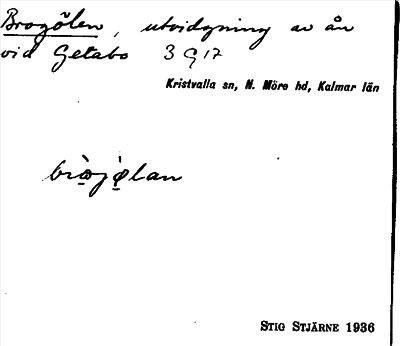 Brogölen, utvidgning av ån
vid Getabo 3 G 17
Kristvalla sn, N. Möre hd, Kalmar län
STIG STJÄRNE 1936